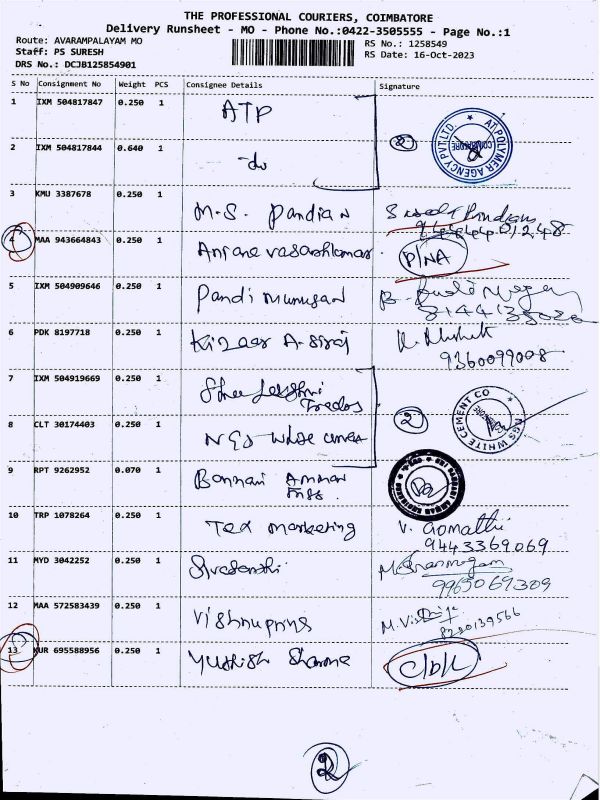 THE PROFESSIONAL COURIERS, COIMBATORE
Delivery Runsheet - MO - Phone No.:0422-3505555 - Page No.:1
Route: AVARAMPALAYAM MO
RS No.: 1258549
Staff: PS SURESH
RS Date: 16-Oct-2023
DRS No.: DCJB125854901
S No Consignment No Weight PCS Consignee Details Signature
1 IXM 504817847 0.250 1 ATP
2 IXM 504817844 0.640 1 do 2
AT POLYMER AGENCY PVT LTD COIMBATORE
3 KMU 3387678 0.250 1 M.S. Pandian
4 MAA 943664843 0.250 1 P/NA
5 IXM 504909646 0.250 1 Pandi Murugan
6 PDK 8197718 0.250 1
9360099008
7 IXM 504919669 0.250 1 Shree Lakshmi Trades
8 CLT 30174403 0.250 1 NGS White 2
NGS WHITE CEMENT CO
9 RPT 9262952 0.070 1 Bannari Amman
10 TRP 1078264 0.250 1 Tex marketing V. Gomathi
9443369069
11 MYD 3042252 0.250 1 Sivasanthi M. Shanmugam
9965069309
12 MAA 572583439 0.250 1 Vishnupriya
8220139566
13 KUR 695588956 0.250 1 Sharma C/D/L
2